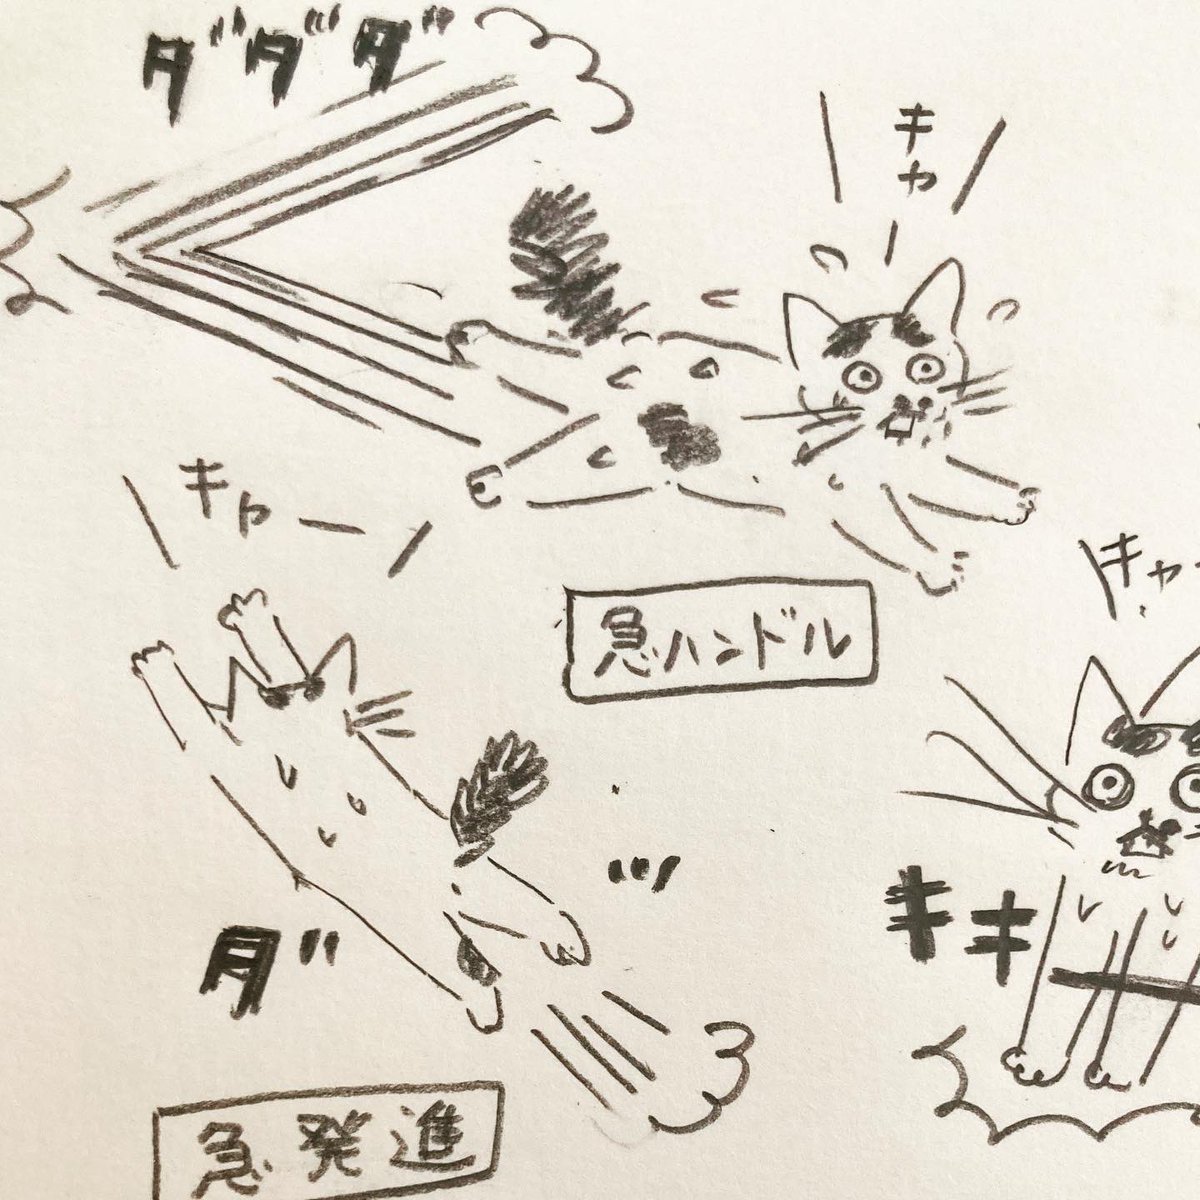 ダダダ
キャ
キャー
急ハンドル
キャー
ダッ
キキー
急発進